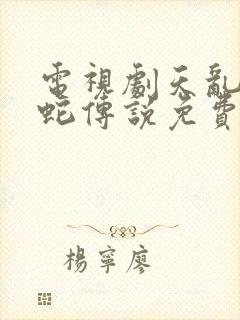 電視劇天亂
蛇傳說免費
楊寧廖